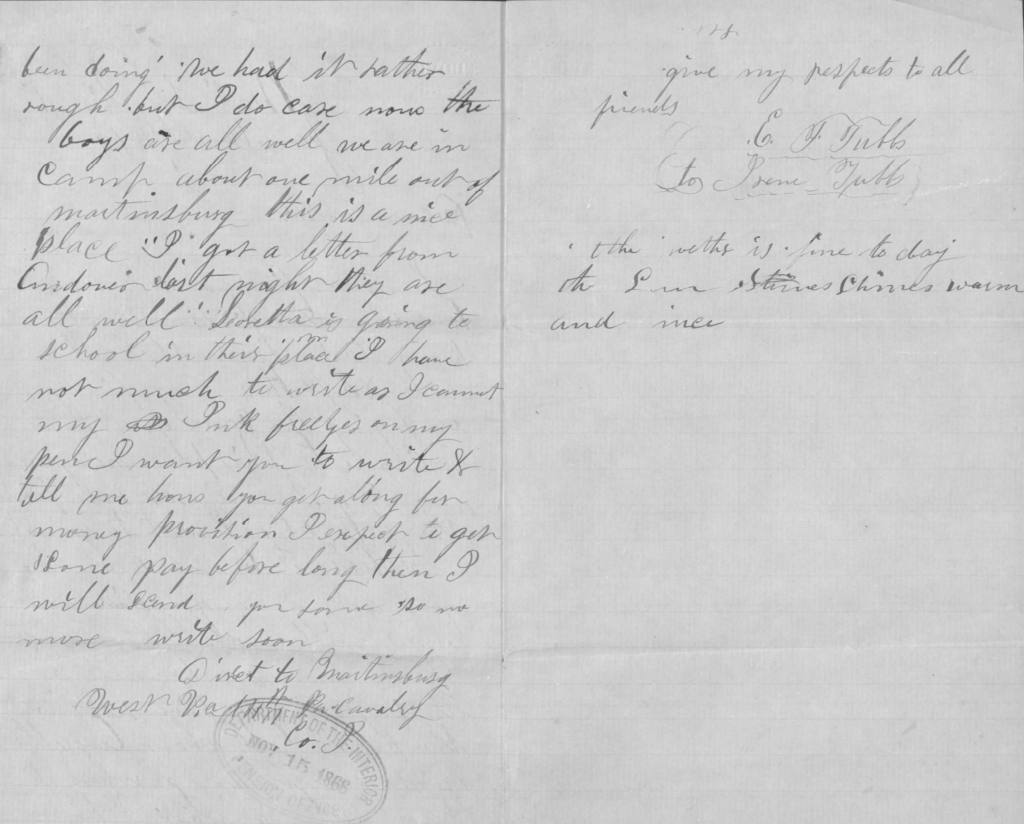 been doing we had it rather
rough but I do care now the
boys are all well we are in
camp about one mile out of
martinsburg this is a nice
place I got a letter from
Andover last night they are
all well Loretta is going to
school in their place I have
not much to write as I cannot
my Ink freezes on my
pen I want you to write &
tell me how you get along for
money provition I expect to get
some pay before long then I
will send you some so no
more write soon
Direct to Martinsburg
West Va Pa Cavalry
Co.
DEPARTMENT OF THE INTERIOR
NOV 15 1866
PENSION OFFICE
give my respects to all
friends
E. F Tubbs
to Irene Tubbs
the wether is fine to day
the Sun Shines Shines warm
and nice